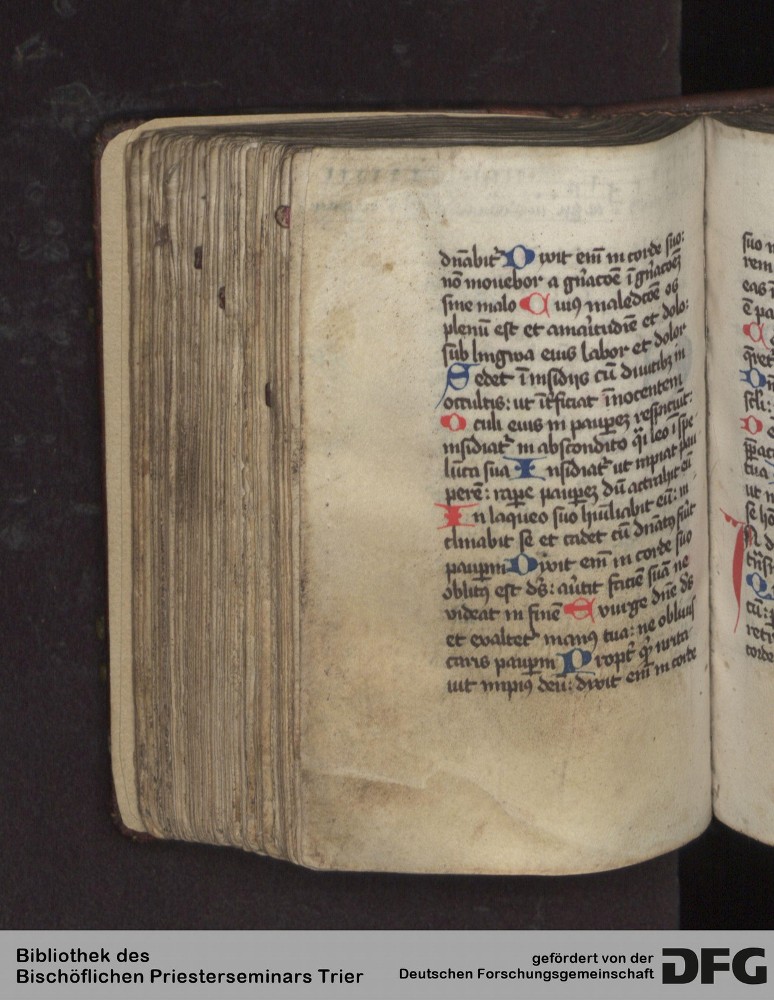 dn̄abit᷑ Dixit eni̅ in corde suo:
no̅ mouebor a gn̄acōe i̅ gn̄acōeꝫ
sine malo Cuiꝰ maledicōe os
plenu̅ est et amaritudīe et dolo:
sub lingwa eius labor et dolor
Sedet i̅ insidijs cu̅ diuitibꝫ in
occultis: ut i̅t̓ficiat i̅nocentem
Oculi eius in paup̲eꝫ respiciu̅t:
insidiat᷑ in abscondito q̓i leo i̅ spe
lu̅ca sua Insidiat᷑ ut rapiat pau
pere̅: rap̲e paup̲eꝫ du̅ attrahit eu̅
In laqueo suo hu̅iliabit eu̅: in
clinabit se et cadet cu̅ dn̄atꝰ fu̓it
paup̲m Dixit eni̅ in corde suo
oblitꝰ est ds̅: au̓tit facie̅ sua̅ ne
videat in fine̅ Exurge dn̄e ds̅
et exaltet᷑ manꝰ tua: ne obliuis
caris paup̲m Propt̓ q̓ irrita
uit impiꝰ deu̅: dixit eni̅ in corde
suo n
rem
eas i̅
e̅ pa
Bibliothek des
Bischöflichen Priesterseminars Trier
gefördert von der
Deutschen Forschungsgemeinschaft
DFG